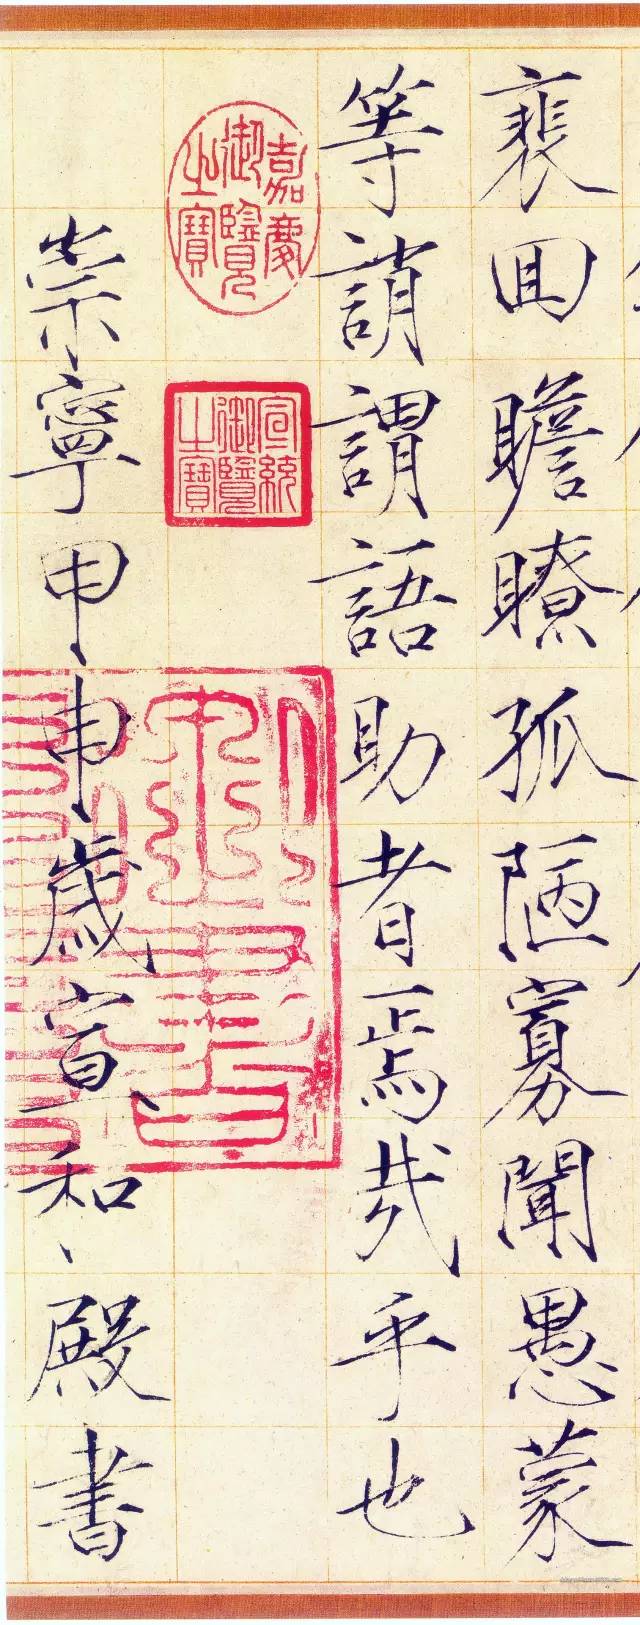 裵囬瞻瞭孤陋寡聞愚蒙
等誚謂語助者焉哉乎也
嘉慶御覽之寶
宣統御覽之寶
崇寧甲申歲宣和殿書